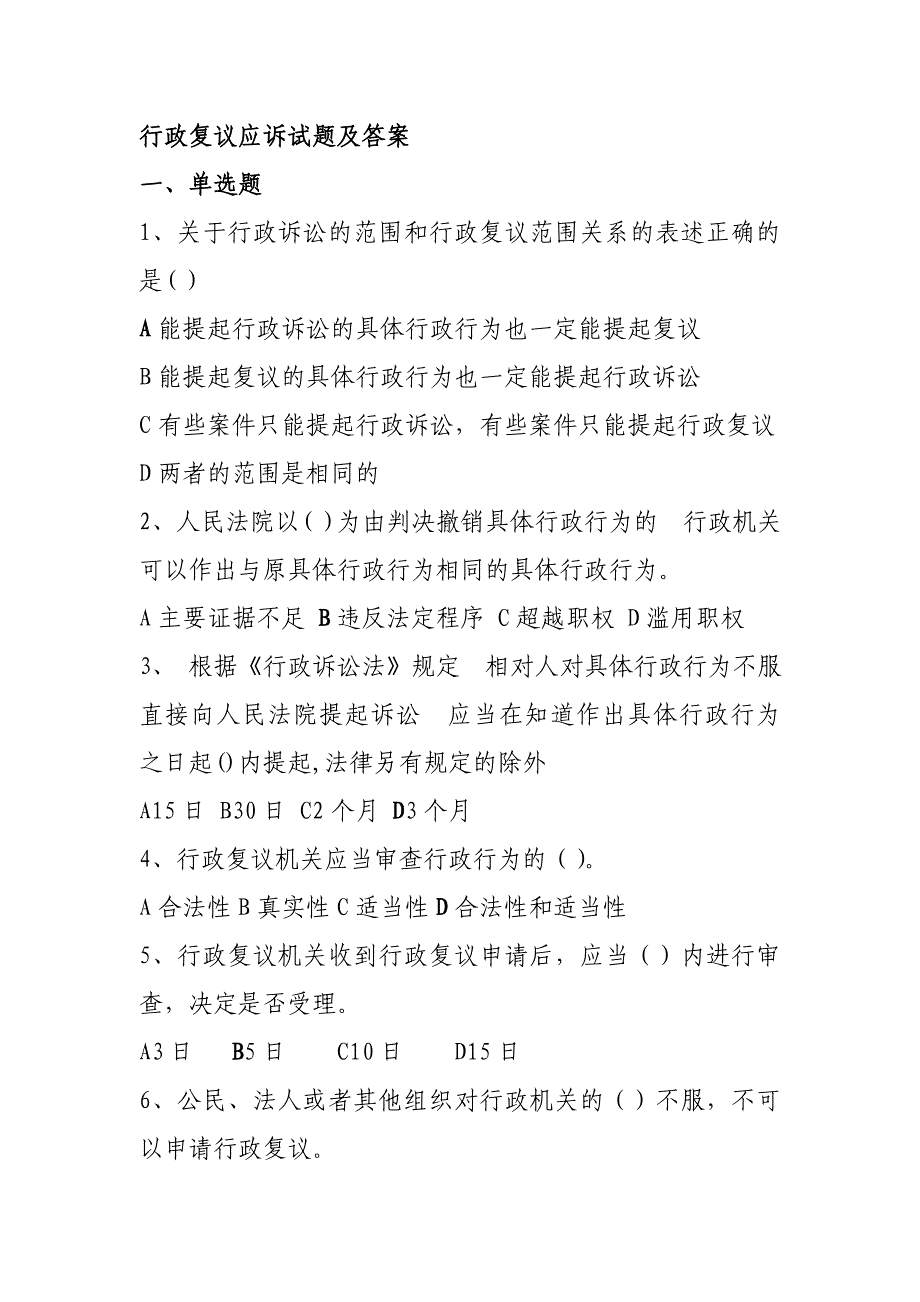 行政复议应诉试题及答案
一、单选题
1、关于行政诉讼的范围和行政复议范围关系的表述正确的
是( )
A 能提起行政诉讼的具体行政行为也一定能提起复议
B 能提起复议的具体行政行为也一定能提起行政诉讼
C 有些案件只能提起行政诉讼，有些案件只能提起行政复议
D 两者的范围是相同的
2、人民法院以( )为由判决撤销具体行政行为的　行政机关
可以作出与原具体行政行为相同的具体行政行为。
A 主要证据不足 B 违反法定程序 C 超越职权 D 滥用职权
3、 根据《行政诉讼法》规定　相对人对具体行政行为不服
直接向人民法院提起诉讼　应当在知道作出具体行政行为
之日起()内提起,法律另有规定的除外
A15 日 B30 日 C2 个月 D3 个月
4、行政复议机关应当审查行政行为的 ( )。
A 合法性 B 真实性 C 适当性 D 合法性和适当性
5、行政复议机关收到行政复议申请后，应当（ ）内进行审
查，决定是否受理。
A3 日 B5 日 C10 日 D15 日
6、公民、法人或者其他组织对行政机关的（ ）不服，不可
以申请行政复议。